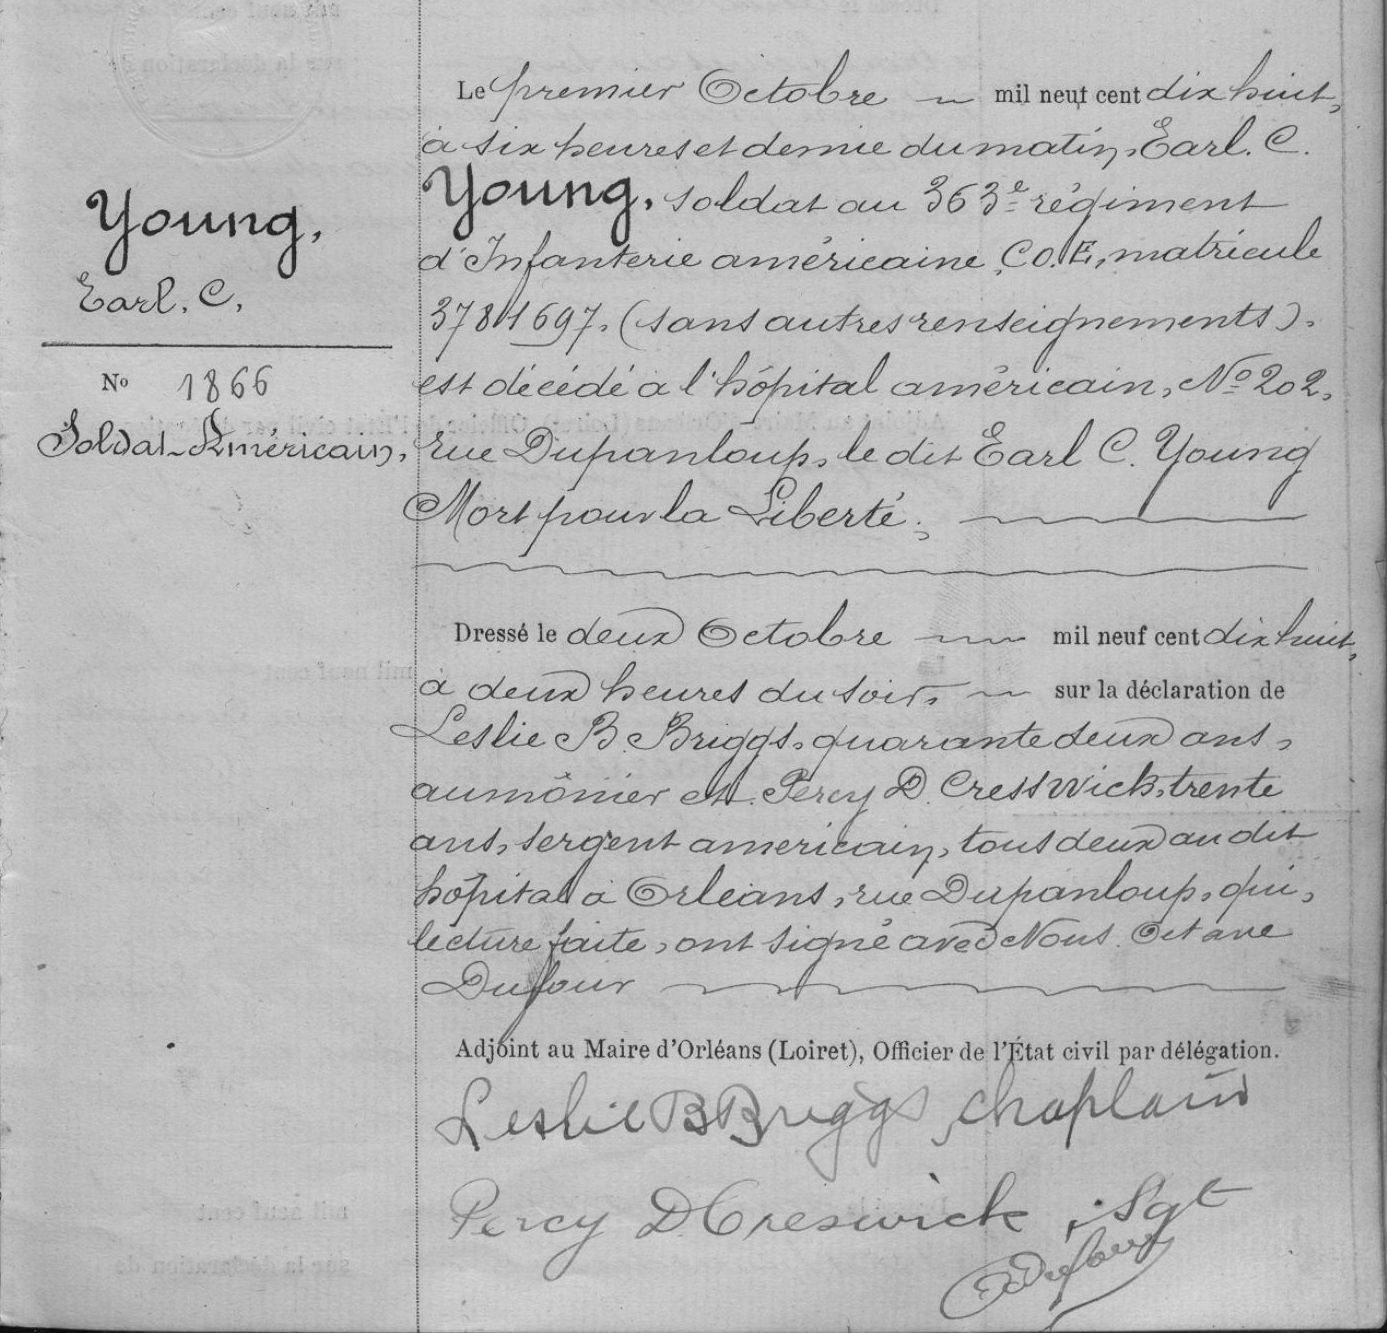 Young,
Earl. C,
Nº 1866
Soldat Américain,
Le premier Octobre mil neuf cent dix huit,
à six heures et demie du matin, Earl. C.
Young, soldat au 363e régiment
d'Infanterie américaine, Co. E, matricule
3781697, (sans autres renseignements).
est décédé à l'hôpital américain, Nº 202,
rue Dupanloup, le dit Earl C. Young
Mort pour la Liberté.
Dressé le deux Octobre mil neuf cent dix huit,
à deux heures du soir, sur la déclaration de
Leslie B. Briggs, quarante deux ans,
aumônier et Percy D. Cresswick, trente
ans, sergent americain, tous deux au dit
hôpital à Orléans, rue Dupanloup, qui,
lecture faite, ont signé avec Nous Octave
Dufour
Adjoint au Maire d'Orléans (Loiret), Officier de l'État civil par délégation.
Leslie B Briggs, Chaplain
Percy D Creswick, Sgt
O Dufour